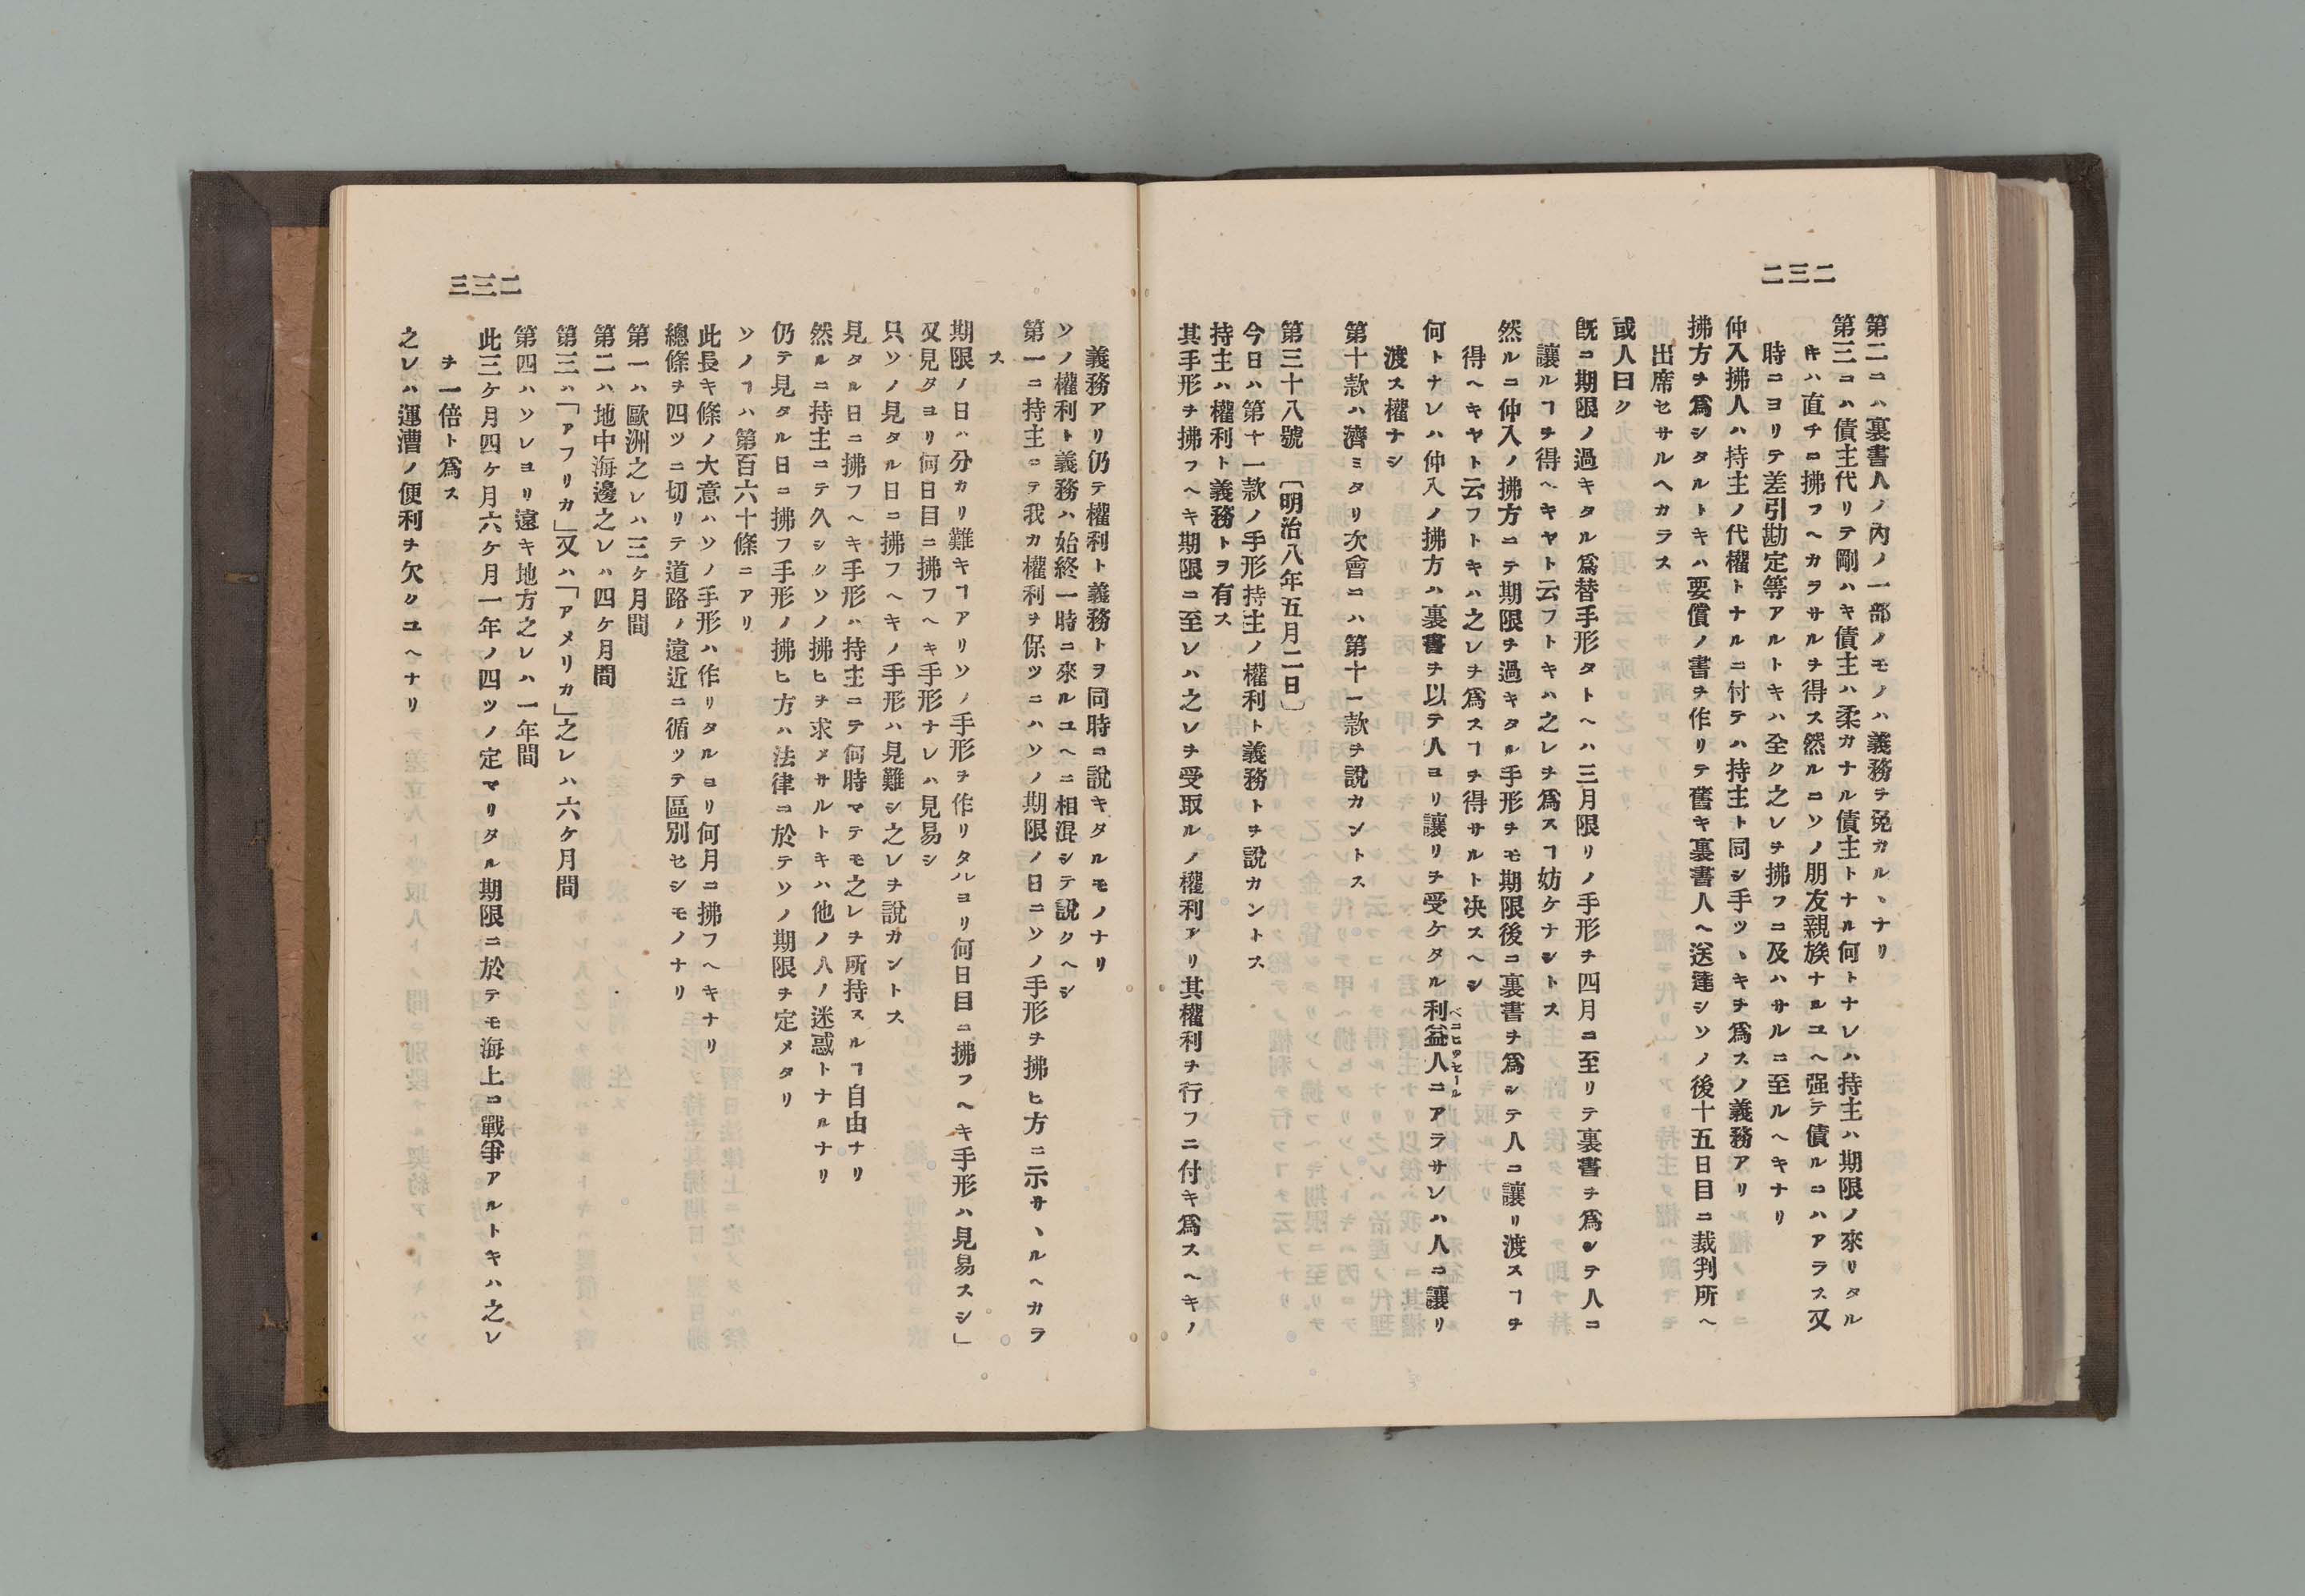 二三二
第二ニハ裏書人ノ內ノ一部ノモノハ義務ヲ免カルヽナリ
第三ニハ債主代リテ剛ハキ債主ハ柔カナル債主トナル何トナレハ持主ハ期限ノ來リタル
キハ直チニ拂フヘカラサルヲ得ス然ルニソノ朋友親族ナルユヘ强テ債ルニハアラス又
時ニヨリテ差引勘定等アルトキハ全ク之レヲ拂フニ及ハサルニ至ルヘキナリ
仲入拂人ハ持主ノ代權トナルニ付テハ持主ト同シ手ツヽキヲ爲スノ義務アリ
拂方ヲ爲シタルトキハ要償ノ書ヲ作リテ舊キ裏書人ヘ送達シソノ後十五日目ニ裁判所ヘ
出席セサルヘカラス
或人曰ク
旣ニ期限ノ過キタル爲替手形タトヘハ三月限リノ手形ヲ四月ニ至リテ裏書ヲ爲シテ人ニ
讓ルヿヲ得ヘキヤト云フトキハ之レヲ爲スヿ妨ケナシトス
然ルニ仲入ノ拂方ニテ期限ヲ過キタル手形ヲモ期限後ニ裏書ヲ爲シテ人ニ讓リ渡スヿヲ
得ヘキヤト云フトキハ之レヲ爲スヿヲ得サルト决スヘシ
何トナレハ仲入ノ拂方ハ裏書ヲ以テ人ヨリ讓リヲ受ケタル利益人ニアラサレハ人ニ讓リ
渡ス權ナシ
第十款ハ濟ミタリ次會ニハ第十一款ヲ說カントス
第三十八號 〔明治八年五月二日〕
今日ハ第十一款ノ手形持主ノ權利ト義務トヲ說カントス
持主ハ權利ト義務トヲ有ス
其手形ヲ拂フヘキ期限ニ至レハ之レヲ受取ルノ權利アリ其權利ヲ行フニ付キ爲スヘキノ
二三三
義務アリ仍テ權利ト義務トヲ同時ニ說キタルモノナリ
ソノ權利ト義務ハ始終一時ニ來ルユヘニ相混シテ說クヘシ
第一ニ持主ニテ我カ權利ヲ保ツニハソノ期限ノ日ニソノ手形ヲ拂ヒ方ニ示サヽルヘカラ
ス
期限ノ日ハ分カリ難キヿアリソノ手形ヲ作リタルヨリ何日目ニ拂フヘキ手形ハ見易スシ」
又見タヨリ何日目ニ拂フヘキ手形ナレハ見易シ
只ソノ見タル日ニ拂フヘキノ手形ハ見難シ之レヲ說カントス
見タル日ニ拂フヘキ手形ハ持主ニテ何時マテモ之レヲ所持スルヿ自由ナリ
然ルニ持主ニテ久シクソノ拂ヒヲ求メサルトキハ他ノ人ノ迷惑トナルナリ
仍テ見タル日ニ拂フ手形ノ拂ヒ方ハ法律ニ於テソノ期限ヲ定メタリ
ソノヿハ第百六十條ニアリ
此長キ條ノ大意ハソノ手形ハ作リタルヨリ何月ニ拂フヘキナリ
總條ヲ四ツニ切リテ道路ノ遠近ニ循ツテ區別セシモノナリ
第一ハ歐洲之レハ三ケ月間
第二ハ地中海邊之レハ四ケ月間
第三ハ「アフリカ」又ハ「アメリカ」之レハ六ケ月間
第四ハソレヨリ遠キ地方之レハ一年間
此三ケ月四ケ月六ケ月一年ノ四ツノ定マリタル期限ニ於テモ海上ニ戰爭アルトキハ之レ
ヲ一倍ト爲ス
之レハ運漕ノ便利ヲ欠クユヘナリ